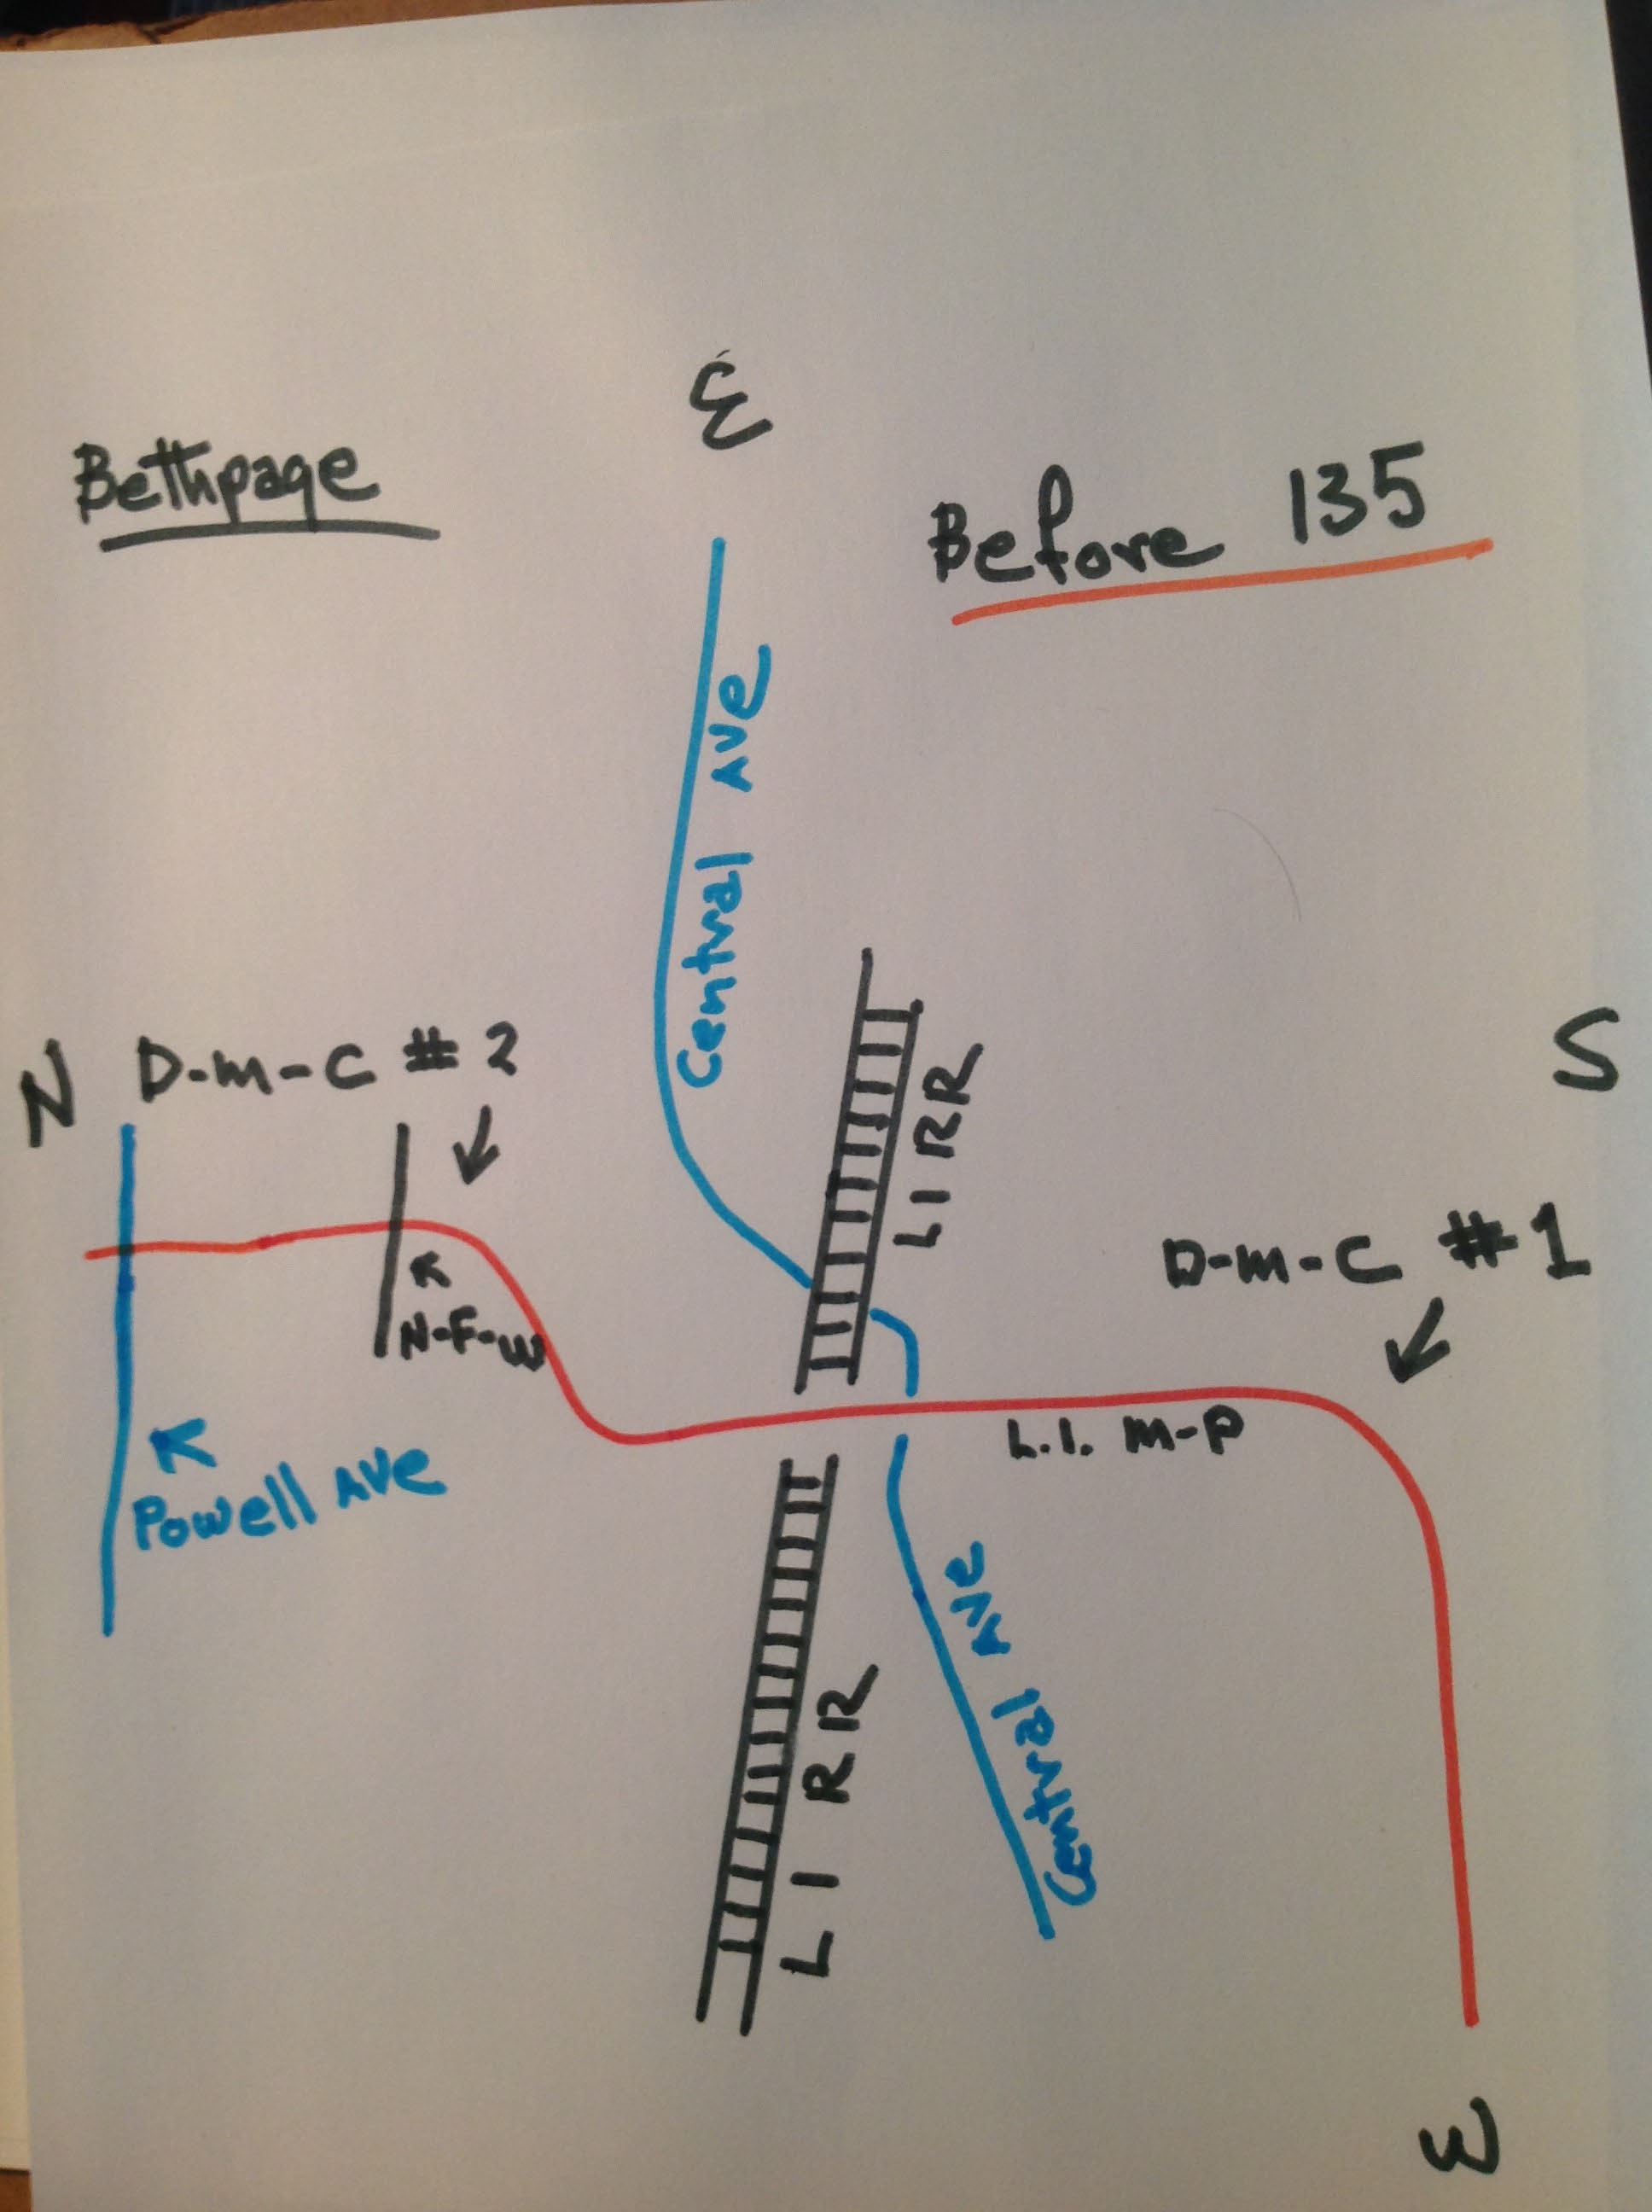 E
Bethpage
Before 135
Central Ave
N
D-m-C # 2
S
LIRR
D-m-C #1
N-F-W
L.I. m-p
Powell Ave
Central Ave
LIRR
W